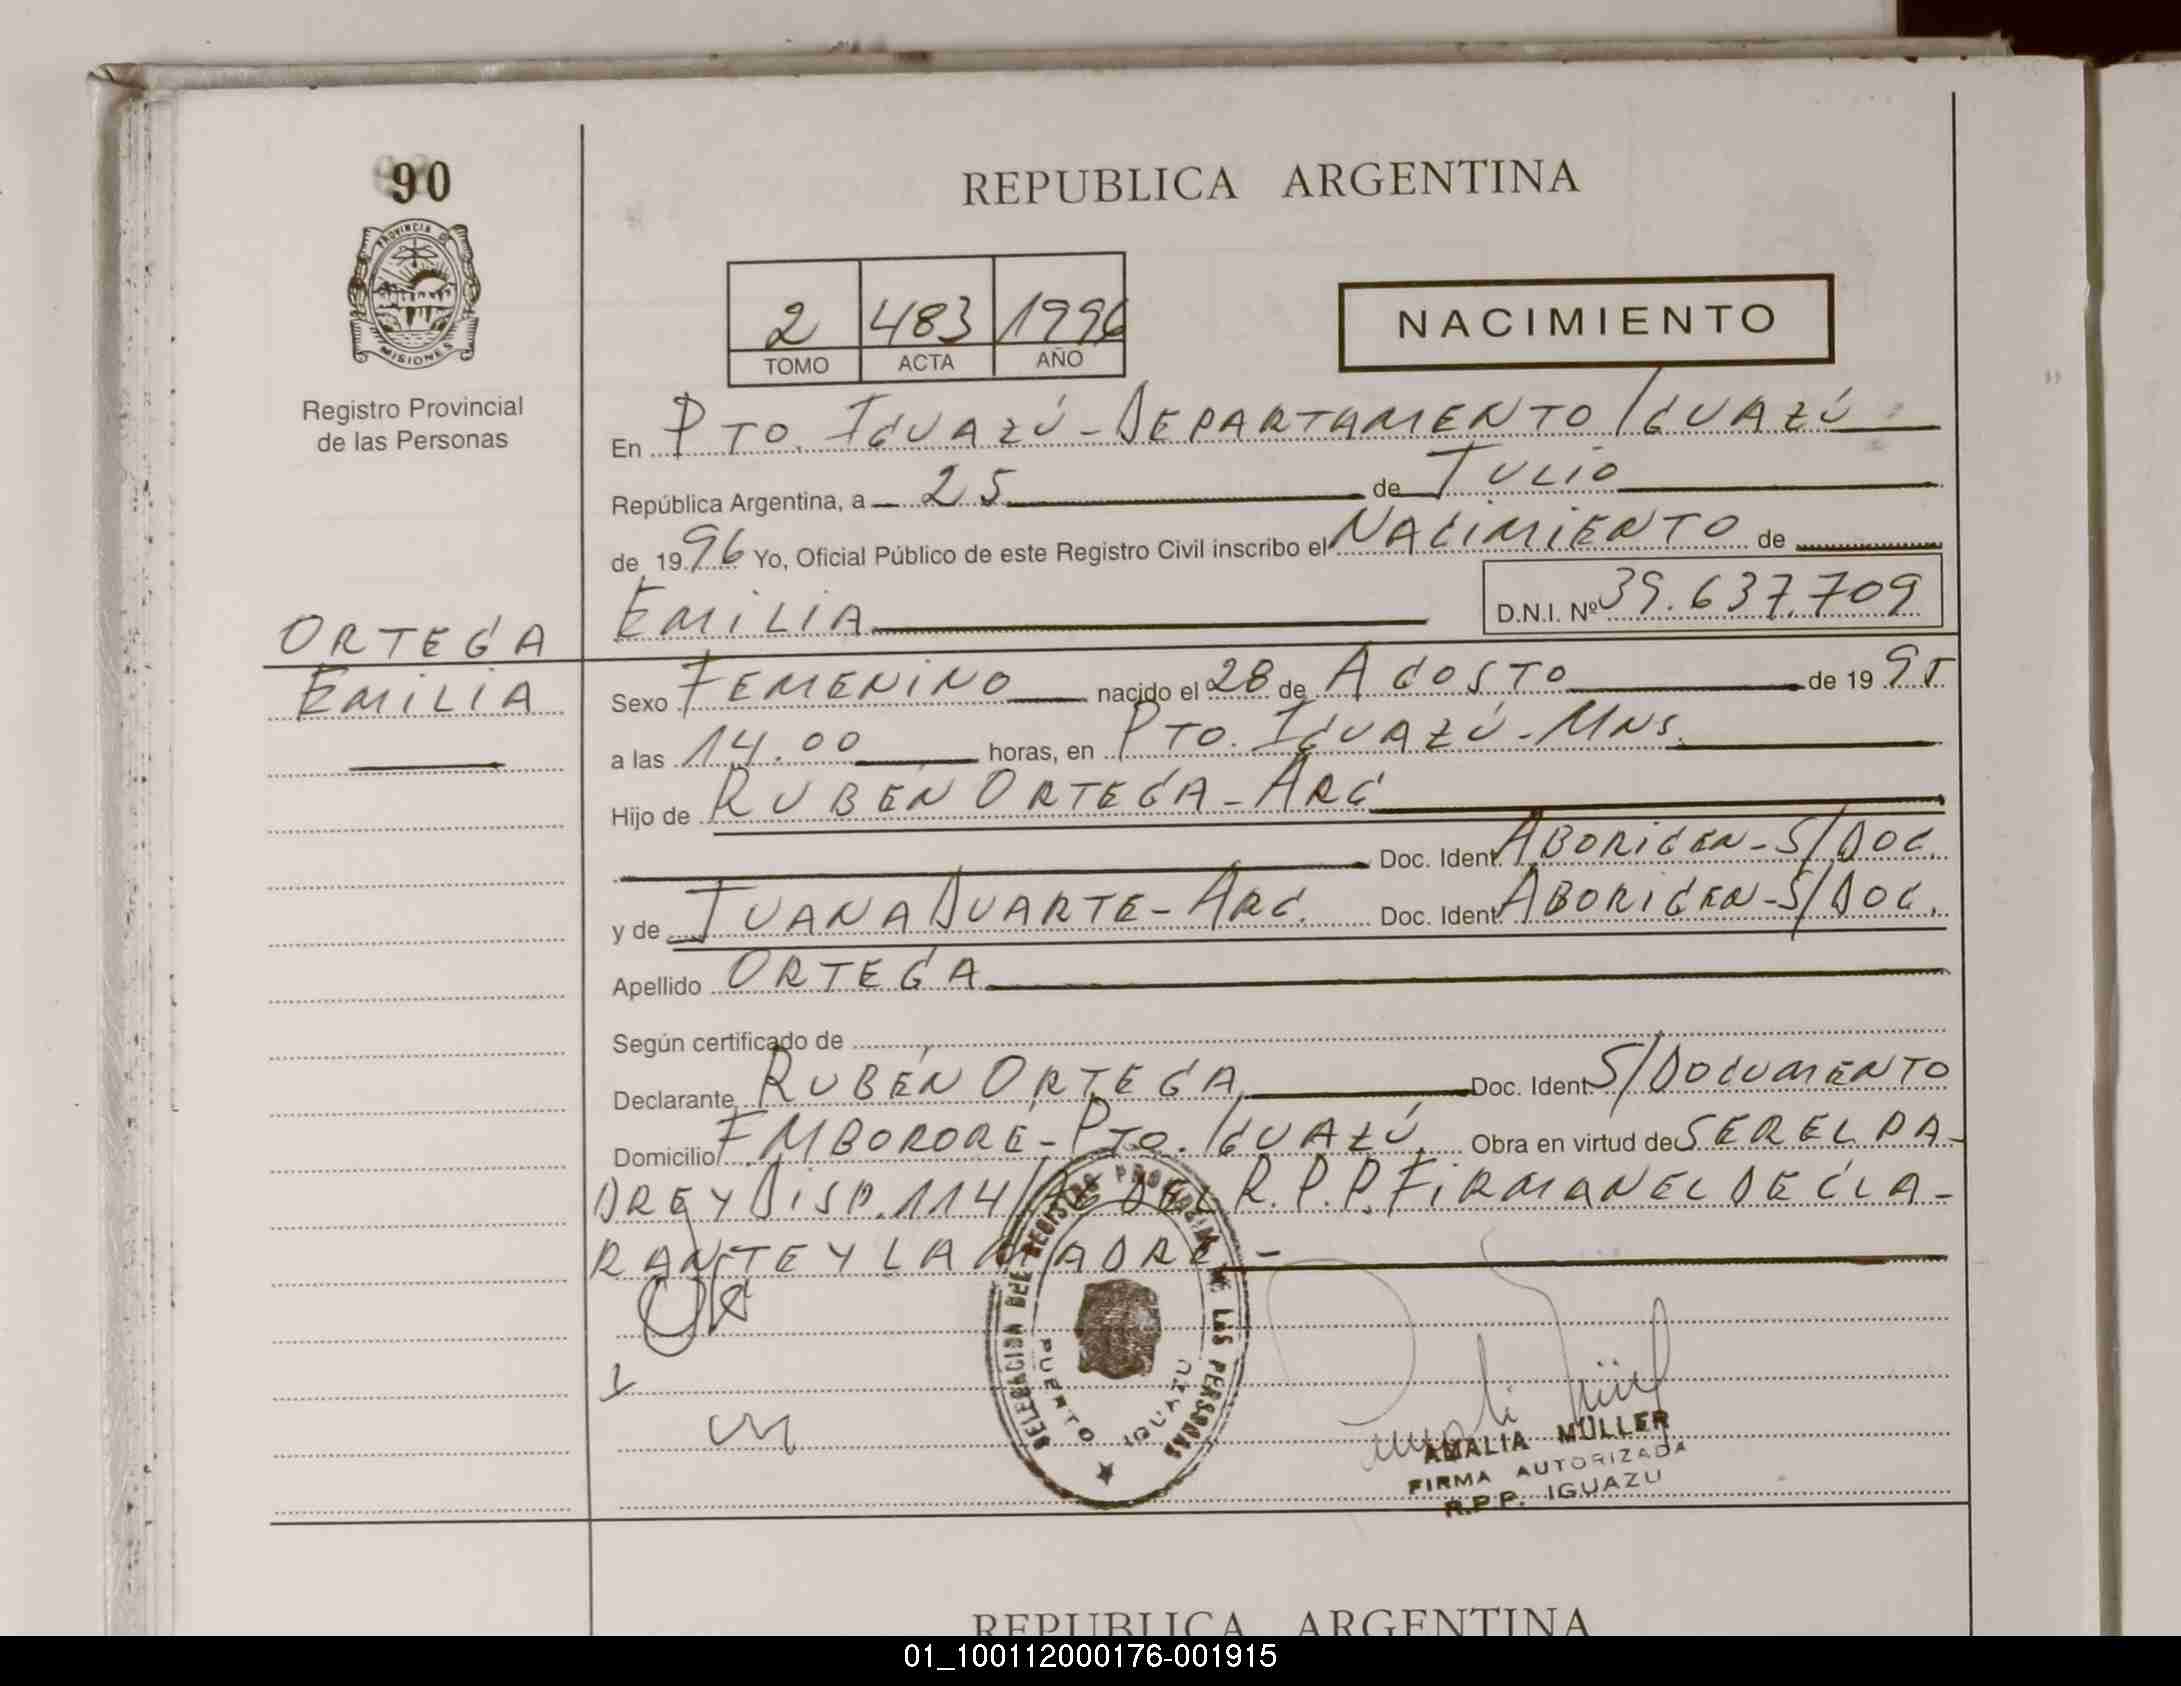 90
PROVINCIA DE
MISIONES
Registro Provincial
de las Personas
ORTEGA
EMILIA
REPUBLICA ARGENTINA
2 483 1996
TOMO ACTA AÑO
NACIMIENTO
En PTO. IGUAZÚ - DEPARTAMENTO IGUAZÚ
República Argentina, a 25 de JULIO
de 1996 Yo, Oficial Público de este Registro Civil inscribo el NACIMIENTO de
EMILIA D.N.I. Nº 39.637.709
Sexo FEMENINO nacido el 28 de AGOSTO de 1995
a las 14.00 horas, en PTO. IGUAZÚ - MNS.
Hijo de RUBEN ORTEGA - ARG
Doc. Ident. ABORIGEN - S/DOC.
y de JUANA DUARTE - ARG. Doc. Ident. ABORIGEN - S/DOC.
Apellido ORTEGA
Según certificado de
Declarante RUBÉN ORTEGA Doc. Ident. S/DOCUMENTO
Domicilio F. MBORORÉ - PTO. IGUAZÚ Obra en virtud de SER EL PA-
DRE Y DISP. 114/ DEL R.P.P. FIRMAN EL DECLA-
RANTE Y LA MADRE -
DELEGACION DEL REGISTRO PROVINCIAL DE LAS PERSONAS
PUERTO IGUAZU
AMALIA MÜLLER
FIRMA AUTORIZADA
R.P.P. IGUAZU
REPUBLICA ARGENTINA
01_100112000176-001915